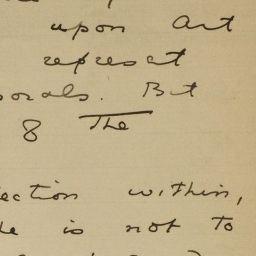 upon Art
represent
morals. But
8 The
ection within,
is not to